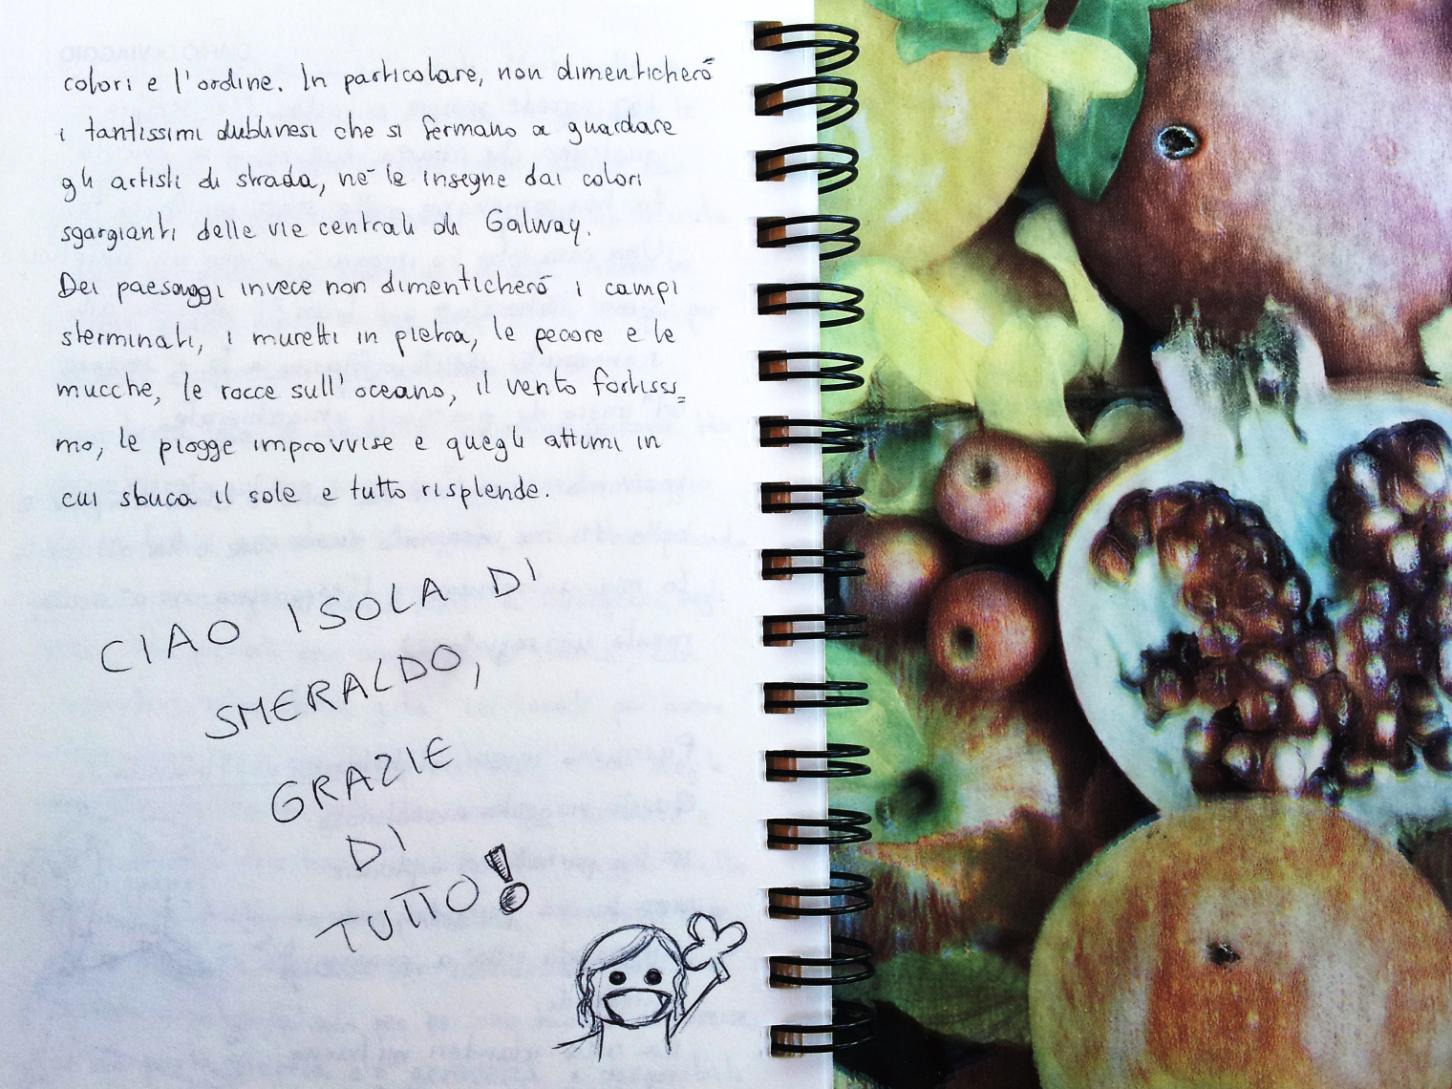 colori e l'ordine. In particolare, non dimenticherò
i tantissimi dublinesi che si fermano a guardare
gli artisti di strada, né le insegne dai colori
sgargianti delle vie centrali di Galway.
Dei paesaggi invece non dimenticherò i campi
sterminati, i muretti in pietra, le pecore e le
mucche, le rocce sull'oceano, il vento fortissi=
mo, le piogge improvvise e quegli attimi in
cui sbuca il sole e tutto risplende.
CIAO ISOLA DI
SMERALDO,
GRAZIE
DI
TUTTO!